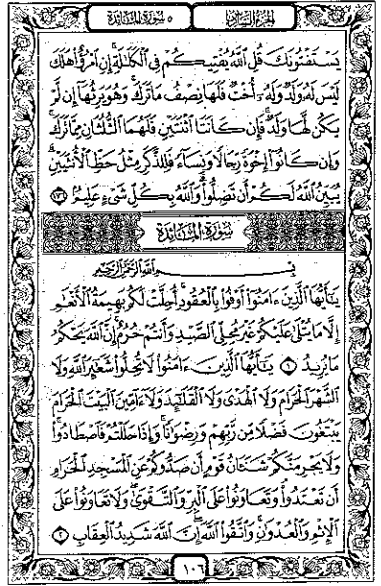 ٥ سورة المائدة
الجزء السادس
يَسْتَفْتُونَكَ قُلِ ٱللَّهُ يُفْتِيكُمْ فِي ٱلْكَلَٰلَةِ إِنِ ٱمْرُؤٌا۟ هَلَكَ
لَيْسَ لَهُۥ وَلَدٌ وَلَهُۥٓ أُخْتٌ فَلَهَا نِصْفُ مَا تَرَكَ وَهُوَ يَرِثُهَآ إِن لَّمْ
يَكُن لَّهَا وَلَدٌ فَإِن كَانَتَا ٱثْنَتَيْنِ فَلَهُمَا ٱلثُّلُثَانِ مِمَّا تَرَكَ
وَإِن كَانُوٓا۟ إِخْوَةً رِّجَالًا وَنِسَآءً فَلِلذَّكَرِ مِثْلُ حَظِّ ٱلْأُنثَيَيْنِ
يُبَيِّنُ ٱللَّهُ لَكُمْ أَن تَضِلُّوا۟ وَٱللَّهُ بِكُلِّ شَىْءٍ عَلِيمٌۢ ١٧٦
سورة المائدة
بِسْمِ ٱللَّهِ ٱلرَّحْمَٰنِ ٱلرَّحِيمِ
يَٰٓأَيُّهَا ٱلَّذِينَ ءَامَنُوٓا۟ أَوْفُوا۟ بِٱلْعُقُودِ أُحِلَّتْ لَكُم بَهِيمَةُ ٱلْأَنْعَٰمِ
إِلَّا مَا يُتْلَىٰ عَلَيْكُمْ غَيْرَ مُحِلِّى ٱلصَّيْدِ وَأَنتُمْ حُرُمٌ إِنَّ ٱللَّهَ يَحْكُمُ
مَا يُرِيدُ ١ يَٰٓأَيُّهَا ٱلَّذِينَ ءَامَنُوا۟ لَا تُحِلُّوا۟ شَعَٰٓئِرَ ٱللَّهِ وَلَا
ٱلشَّهْرَ ٱلْحَرَامَ وَلَا ٱلْهَدْىَ وَلَا ٱلْقَلَٰٓئِدَ وَلَآ ءَآمِّينَ ٱلْبَيْتَ ٱلْحَرَامَ
يَبْتَغُونَ فَضْلًا مِّن رَّبِّهِمْ وَرِضْوَٰنًا وَإِذَا حَلَلْتُمْ فَٱصْطَادُوا۟
وَلَا يَجْرِمَنَّكُمْ شَنَـَٔانُ قَوْمٍ أَن صَدُّوكُمْ عَنِ ٱلْمَسْجِدِ ٱلْحَرَامِ
أَن تَعْتَدُوا۟ وَتَعَاوَنُوا۟ عَلَى ٱلْبِرِّ وَٱلتَّقْوَىٰ وَلَا تَعَاوَنُوا۟ عَلَى
ٱلْإِثْمِ وَٱلْعُدْوَٰنِ وَٱتَّقُوا۟ ٱللَّهَ إِنَّ ٱللَّهَ شَدِيدُ ٱلْعِقَابِ ٢
١٠٦